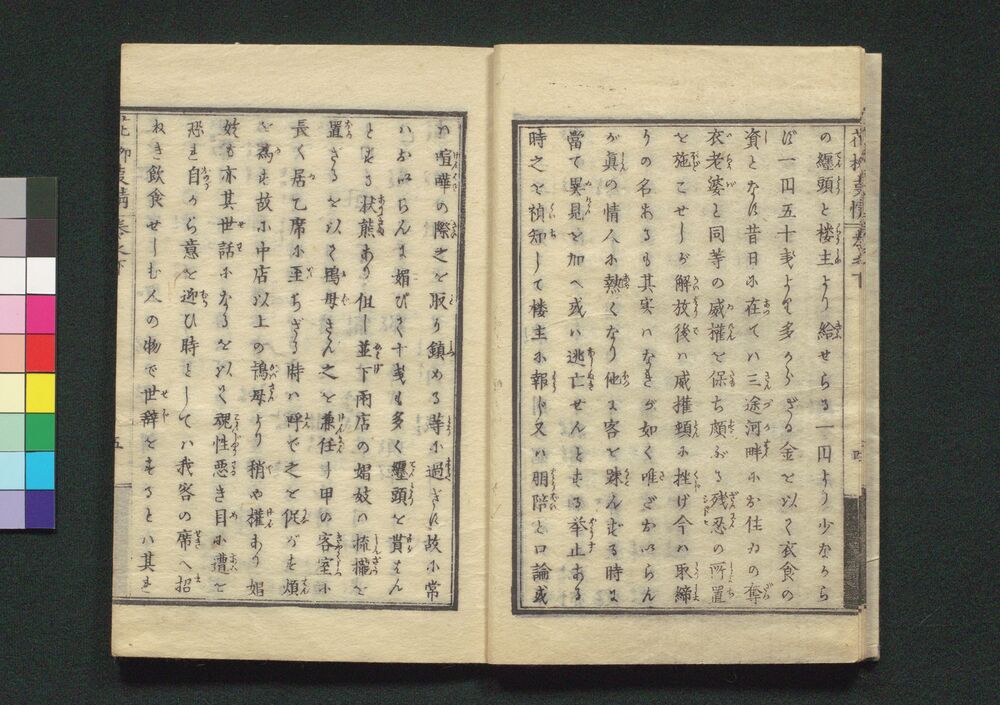 の纒頭と楼主より給せらる一円より少なから
ず一円五十銭より多からざる金を以て衣食の
資となせり昔日に在てハ三途河畔にお住ゐの奪
衣老婆と同等の威権を保ち頗ぶる残忍の所置
を施こせしが解放後ハ威権頓に挫け今ハ取締
りの名あるも其実ハなきが如く唯ざおいらん
が真の情人に熱くなり他に客を疎んずる時に
當て異見を加へ或ハ逃亡せんとする挙止ある
時之を禎知して楼主に報じ又ハ朋陪と口論或
ハ喧嘩の際之を取り鎮める等に過ぎず故に常
ハおいらんに媚びて十銭も多く纒頭を貰はん
とする状態あり但し並下両店の娼妓の梳攏を
置ざるを以て鴇母さん之を兼任す甲の客室に
長く居乙席に至らざる時ハ呼で之を促がす煩
を為す故に中店以上の鴇母より稍や権あり娼
妓も亦其世話になるを以て魂性悪き目に遭を
恐れ自から意を迎ひ時としてハ我客の席へ招
ねき飲食せしむ人の物で世辞をするとハ其れ
花柳事情 巻之下
五